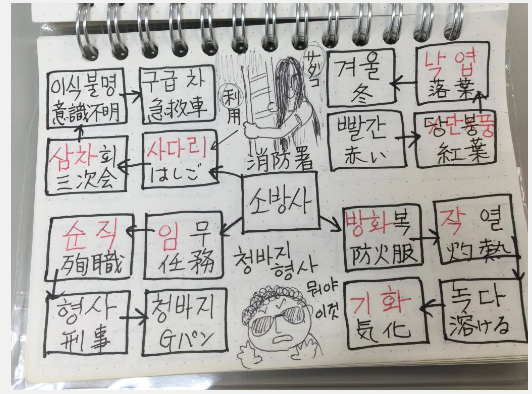 이식불명
意識不明
구급차
急救車
利用
겨울
冬
낙엽
落葉
삼차회
三次会
사다리
はしご
消防署
소방사
빨간
赤い
紅葉
순직
殉職
임무
任務
방화복
防火服
작열
灼熱
형사
刑事
청바지
Gパン
청바지
형사
뭐야
이것
기화
気化
녹다
溶ける